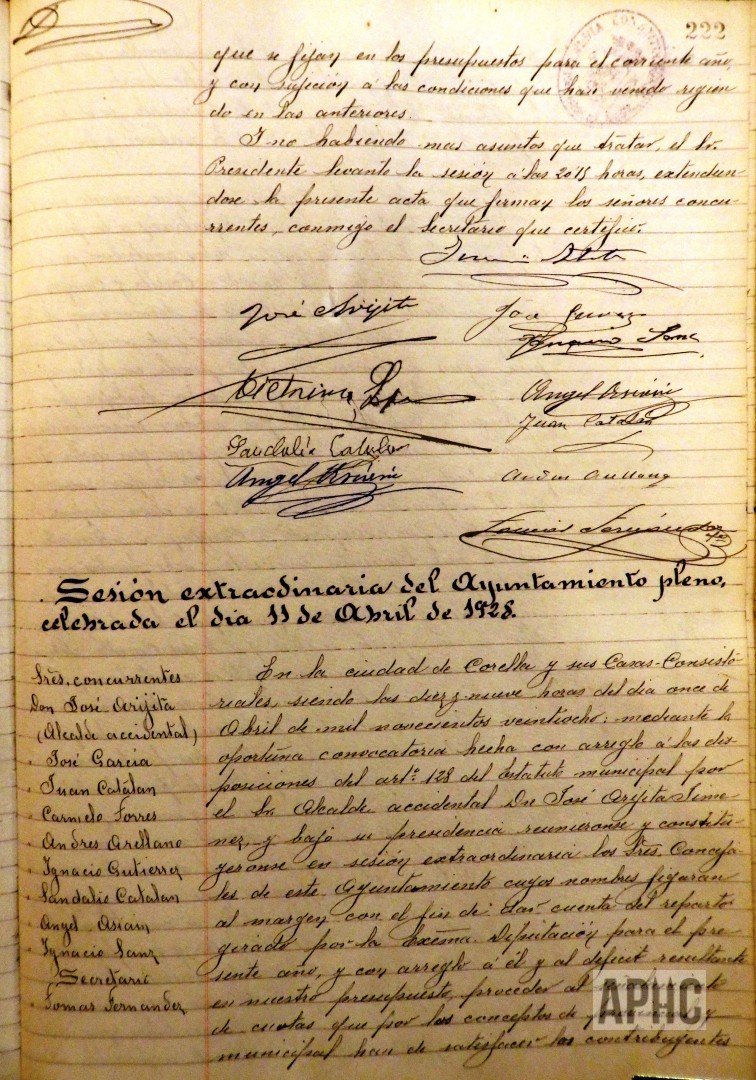 222
que se fijan en los presupuestos para el corriente año,
y con sujeción á las condiciones que han venido rigien
do en las anteriores.
Y no habiendo mas asuntos que tratar, el Sr.
Presidente levanto la sesión á las 20'15 horas, extendien
dose la presente acta que firman los señores concu-
rrentes, conmigo el Secretario que certifico.
José Arijita
Juan Catalán
Sandalio Catalán
Sesión extraodinaria del Ayuntamiento pleno,
celebrada el dia 11 de Abril de 1928.
Sres. concurrentes
Don José Arijita
(Alcalde accidental)
" José Garcia
" Juan Catalan
" Carmelo Torres
" Andres Arellano
" Ignacio Gutierrez
" Sandalio Catalan
" Angel Asiain
" Ignacio Sanz
Secretario
" Tomas Fernandez
En la ciudad de Corella y sus Casas-Consisto
reales, siendo las diez y nueve horas del dia once de
Abril de mil novecientos veintiocho: mediante la
oportuna convocatoria hecha con arreglo á las dis-
posiciones del artº. 128 del Estatuto municipal por
el Sr. Alcalde accidental Dn José Arijita Jime
nez, y bajo su presidencia reunieronse y constitu-
yeronse en sesión extraordinaria los Sres. Conceja-
les de este Ayuntamiento cuyos nombres figuran
al margen, con el fin de: dar cuenta del reparto
girado por la Excma. Diputación para el pre
sente año, y con arreglo á él y al deficit resultante
en nuestro presupuesto, proceder al
de cuotas que por los conceptos de y
municipal han de satisfacer los contribuyentes
APHC